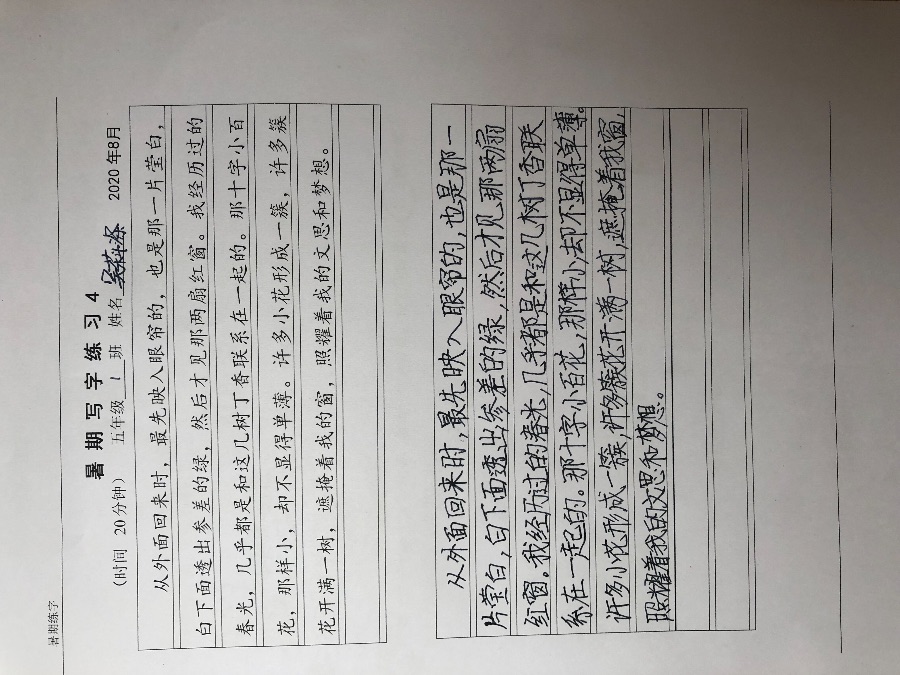 暑期练字
暑 期 写 字 练 习 4
（时间 20分钟） 五年级 1 班 姓名 2020年8月
从外面回来时，最先映入眼帘的，也是那一片莹白，
白下面透出参差的绿，然后才见那两扇红窗。我经历过的
春光，几乎都是和这几树丁香联系在一起的。那十字小百
花，那样小，却不显得单薄。许多小花形成一簇，许多簇
花开满一树，遮掩着我的窗，照耀着我的文思和梦想。
从外面回来时,最先映入眼帘的,也是那一
片莹白,白下面透出参差的绿,然后才见那两扇
红窗。我经历过的春光,几乎都是和这几树丁香联
系在一起的。那十字小百花,那样小去却不显得单薄。
许多小花形成一簇,许多簇花开满一树,遮掩着我窗,
照耀着我的文思和梦想。